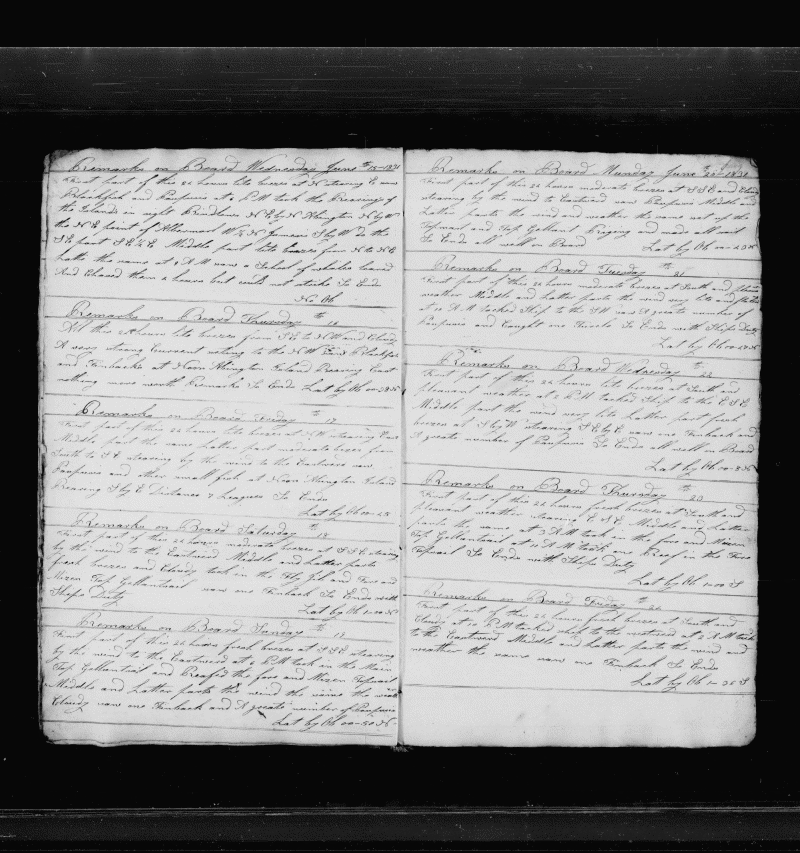 Remarks on Board Wednesday June th 15-1831
First part of this 24 hours lite breezes at N stearing E saw
Blackfish and Porpuses at 6 PM took the Bearings of
the Islands in sight Brindlows NE by N Abington N by W
the NE point of Albermarl W N Jameses S by W the
SE part SE E Middle part lite breezes from N to NE
Latter the same at 9 AM saw a School of whales loared
And Chased them 2 hours but could not strike So Ends
No Ob
Remarks on Board Thursday th 16
All this 24 hours lite breezes from SE to NW and Cloudy
A very strong Current seting to the NW saw Blackfish
and Finbacks at Noon Abington Island Bearing East
nothing more worth Remarks So Ends Lat by Ob 00-38 N
Remarks on Board Friday th 17
First part of this 24 hours lite breezes at NW stearing East
Middle part the same Latter part moderate breezes from
South to SE stearing by the wind to the Eastward saw
Porpuses and other small fish at Noon Abington Island
Bearing S by E Distance 7 Leagues So Ends
Lat by Ob 00-
Remarks on Board Saturday th 18
First part of this 24 hours moderate breezes at SSE stearing
by the wind to the Eastward Middle and Latter parts
fresh breezes and Cloudy took in the Fly Gib and Fore and
Mizen Top Gallantsail saw one Finback So Ends with
Ships Duty
Lat by Ob 1-00 N
Remarks on Board Sunday th 19
First part of this 24 hours fresh breezes at SSE stearing
by the wind to the Eastward at 6 PM took in the Main
Top Gallantsail and Reaffed the fore and Mizen Topsail
Middle and Latter parts the wind the same the weather
Cloudy saw one Finback and A great number of Porpuses
Lat by Ob 00-50 N
Remarks on Board Munday June th 20-1831
First part of this 24 hours moderate breezes at SSE and Cloudy
stearing by the wind to Eastward saw Porpuses Middle and
Latter parts the wind and weather the same set up the
Topmast and Top Gallant Riging and made all sail
So Ends all well on Board Lat by Ob 00-
Remarks on Board Tuesday th 21
First part of this 24 hours moderate breezes at South and pleasant
weather Middle and Latter parts the wind very lite and
at 10 AM tacked Ship to the SW saw A great number of
Porpuses and Caught one Turtle So Ends with Ships Duty
Lat by Ob 00-
Remarks on Board Wednesday th 22
First part of this 24 hours lite breezes at South and
pleasant weather at 2 PM tacked Ship to the ESE
Middle part the wind very lite Latter part fresh
breezes at S by W stearing SE by E saw one Finback and
A great number of Porpuses So Ends all well on Board
Lat by Ob 00-8 N
Remarks on Board Thursday th 23
First part of this 24 hours fresh breezes at South and
pleasant weather stearing ESE Middle and Latter
parts the same at 3 AM took in the fore and Mizen
Top Gallantsail at 10 AM took one Reef in the Fore
Topsail So Ends with Ships Duty
Lat by Ob 1-00 S
Remarks on Board Friday th 24
First part of this 24 hours fresh breezes at South and
Cloudy at 2 PM tacked ship to the westward at 2 AM tackt
to the Eastward Middle and Latter parts the wind and
weather the same saw one Finback So Ends
Lat by Ob 1-36 S